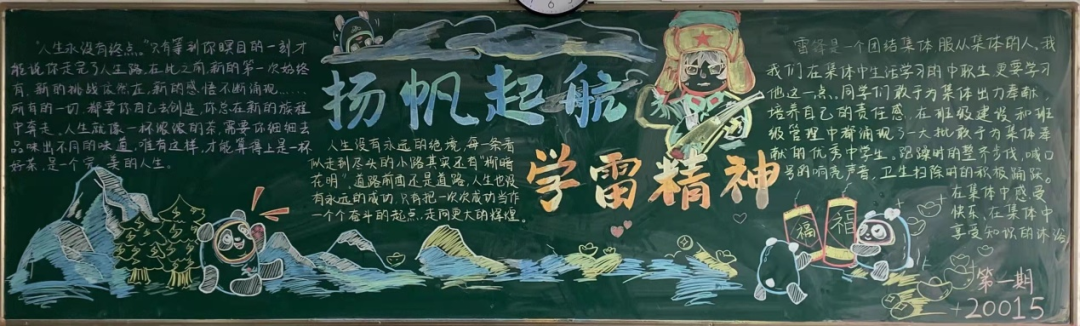 "人生永没有终点。"只有等到你瞑目的一刻才
能说你走完了人生路,在此之前,新的第一次始终
有,新的挑战依然在,新的感悟不断涌现……
所有的一切,都要你自己去创造,你总在新的旅程
中奔走。人生就像一杯浓浓的茶,需要你细细去
品味出不同的味道,唯有这样,才能算得上是一杯
好茶,是一个完美的人生。
扬帆起航
人生没有永远的绝境,每一条看
似走到尽头的小路其实还有"柳暗
花明"。道路前面还是道路,人生也没
有永远的成功,只有把一次次成功当作
一个个奋斗的起点,走向更大的辉煌。
学雷精神
雷锋是一个团结集体服从集体的人,我
我们在集体中生活学习的中职生更要学习
他这一点。同学们敢于为集体出力奉献,
培养自己的责任感,在班级建设和班
级管理中都涌现了一大批敢于为集体奉
献的优秀中学生。跑操时的整齐步伐,喊口
号的响亮声音,卫生扫除时的积极踊跃。
在集体中感受
快乐,在集体中
享受知识的沐浴
福
福
第一期
20015